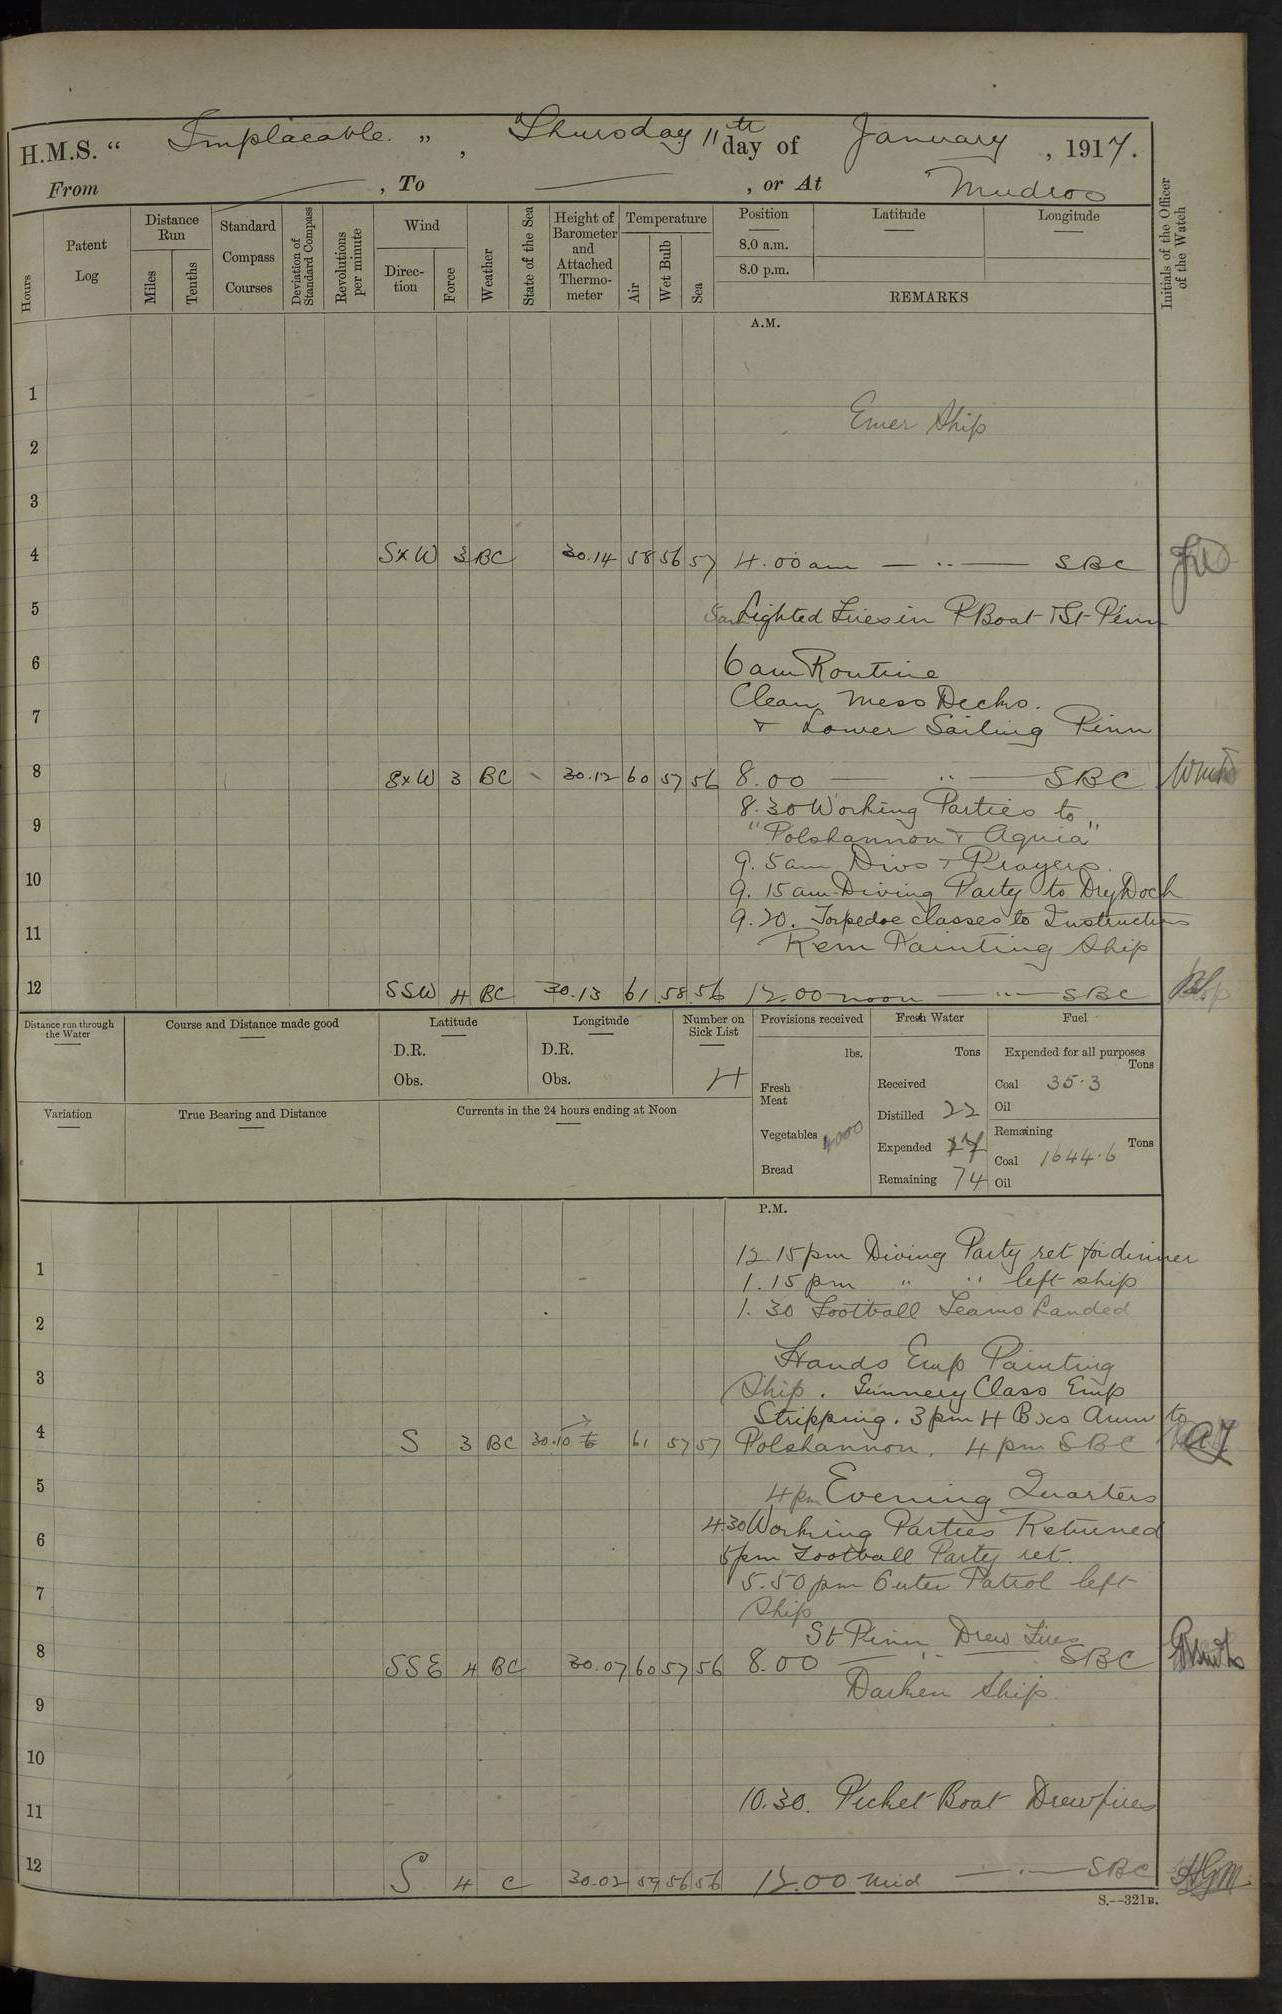 H.M.S. “ Implacable. ” , Thursday 11th day of January , 1917.
From , To , or At Mudros
Hours
Patent Log
Distance Run
Miles
Tenths
Standard Compass Courses
Deviation of Standard Compass
Revolutions per minute
Wind
Direc-tion
Force
Weather
State of the Sea
Height of Barometer and Attached Thermo-meter
Temperature
Air
Wet Bulb
Sea
Position
8.0 a.m.
8.0 p.m.
Latitude
Longitude
REMARKS
Initials of the Officer of the Watch
A.M.
1
Emer Ship
2
3
4 SxW 3 BC 30.14 58 56 57 4.00 am — .. — SBC
5 Lighted Fires in P Boat + St Pinn
6 6 am Routine
Clean Mess Decks.
7 + Lower Sailing Pinn
8 SxW 3 BC 30.12 60 57 56 8.00 — .. — SBC
8.30 Working Parties to
9 "Polshannon + Aquia"
9. 5 am Divs + Prayers.
10 9. 15 am Diving Party to Dry Dock
9.20. Torpedoe classes to Instruction
11 Rem Painting Ship
12 SSW 4 BC 30.13 61 58 56 12.00 noon — .. — SBC
Distance run through the Water
Course and Distance made good
Latitude
D.R.
Obs.
Longitude
D.R.
Obs.
Number on Sick List
4
Provisions received
lbs.
Fresh Meat
Vegetables 4000
Bread
Fresh Water
Tons
Received
Distilled 22
Expended 27
Remaining 74
Fuel
Expended for all purposes
Tons
Coal 35.3
Oil
Remaining
Tons
Coal 1644.6
Oil
Variation
True Bearing and Distance
Currents in the 24 hours ending at Noon
P.M.
12 15 pm Diving Party ret for dinner
1 1.15 pm " " left ship
2 1. 30 Football Teams Landed
Hands Emp Painting
3 Ship. Gunnery Class Emp
Stripping. 3 pm 4 Bxs Amm to
4 S 3 BC 30.10 61 57 57 Polshannon. 4 pm SBC
5 4 pm Evening Quarters
6 4.30 Working Parties Returned
5 pm Football Party ret.
7 5.50 pm Outer Patrol left
Ship
St Pinn Drew Fires
8 SSE 4 BC 30.07 60 57 56 8.00 — .. — SBC
9 Darken Ship
10
11 10.30. Picket Boat Drew fires
12 S 4 C 30.02 59 56 56 12.00 Mid — . — SBC HGM
S.--321B.